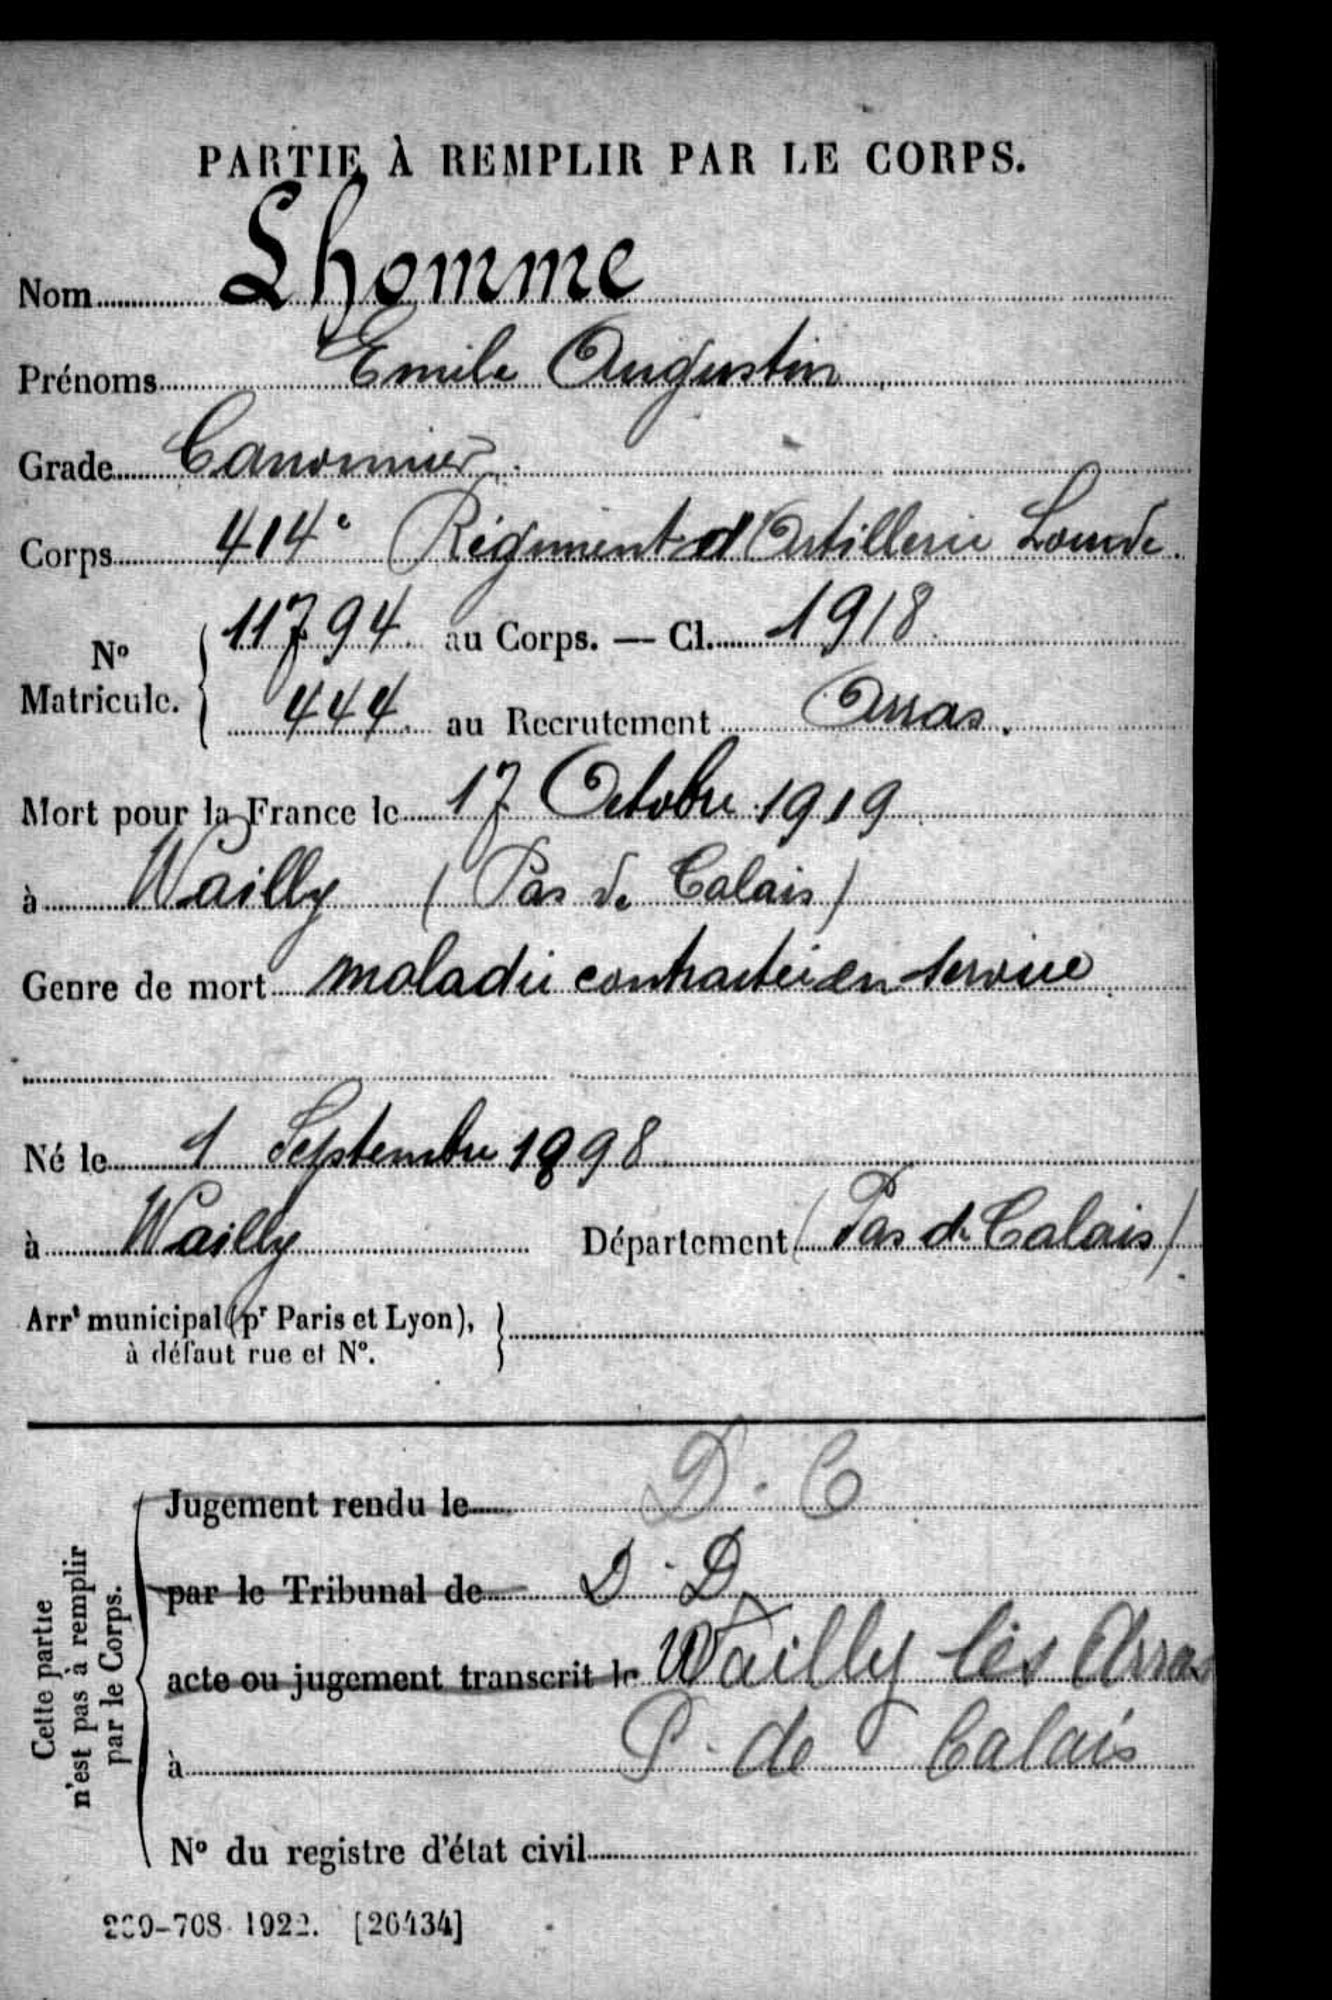 PARTIE À REMPLIR PAR LE CORPS.
Nom Lhomme
Prénoms Emile Augustin
Grade Canonnier
Corps 414e Régiment d'Artillerie Lourde.
No Matricule. 11794 au Corps. — Cl. 1918
444 au Recrutement Arras.
Mort pour la France le 17 Octobre 1919
à Wailly (Pas de Calais)
Genre de mort maladie contractée en service
Né le 1 Septembre 1898
à Wailly Département (Pas de Calais)
Arrt municipal (pr Paris et Lyon),
à défaut rue et No.
Cette partie
n'est pas à remplir
par le Corps.
Jugement rendu le D. C
par le Tribunal de D. D
acte ou jugement transcrit le Wailly les Arras
à P. de Calais
No du registre d'état civil
-708. 1922. [26434]